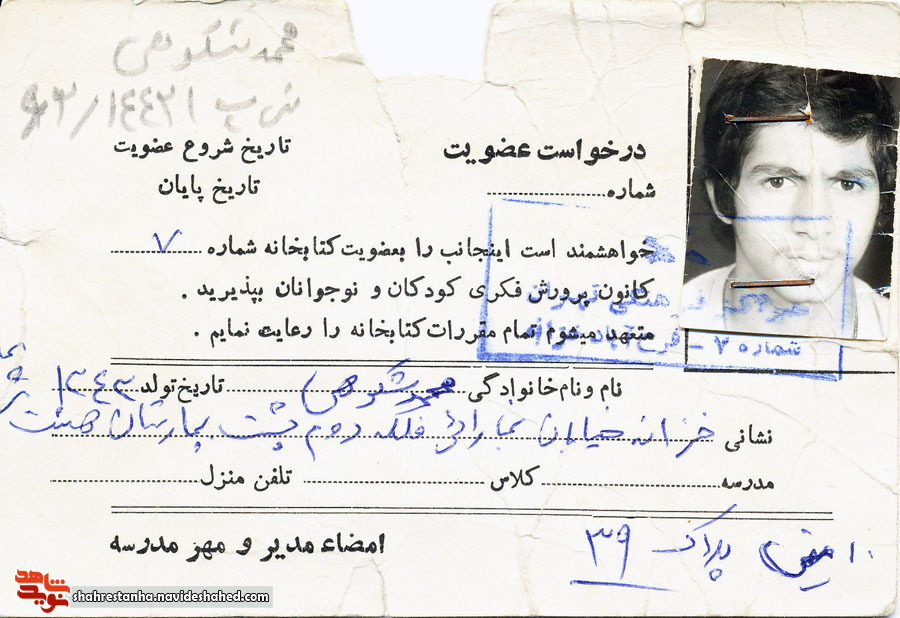 محمد شکوهی
۹۳/۱۴۴۳۱
درخواست عضویت
تاریخ شروع عضویت
شماره
تاریخ پایان
خواهشمند است اینجانب را بعضویت کتابخانه شماره ۷
کانون پرورش فکری کودکان و نوجوانان بپذیرید .
متعهد میشوم تمام مقررات کتابخانه را رعایت نمایم .
شماره ۷ -
نام و نام خانوادگی محمد شکوهی تاریخ تولد ۱۳۴۳
نشانی خزانه خیابان بخارائی فلکه دوم پشت بیمارستان هفت
مدرسه کلاس تلفن منزل
پلاک ۳۹
امضاء مدیر و مهر مدرسه
نوید شاهد
shahrestanha.navideshahed.com